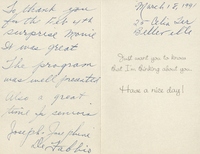 To thank you
for the Feb 4th
surprise Movie
It was great
The program
was well presented
Also a great
time in
Joseph & Josephine
March 18, 1991
Just want you to know
that I'm thinking about you.
Have a nice day!